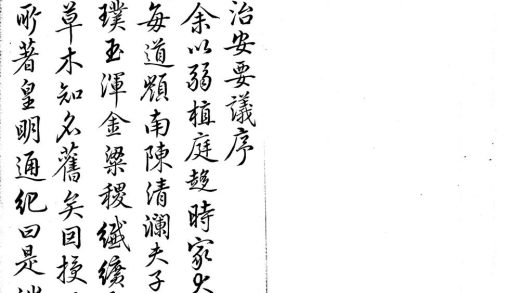 治安要議序
余以弱植庭趍時家大
每道顋南陳清瀾夫子
璞玉渾金粱稷纖纊
草木知名舊矣因授
所著皇明通紀曰是